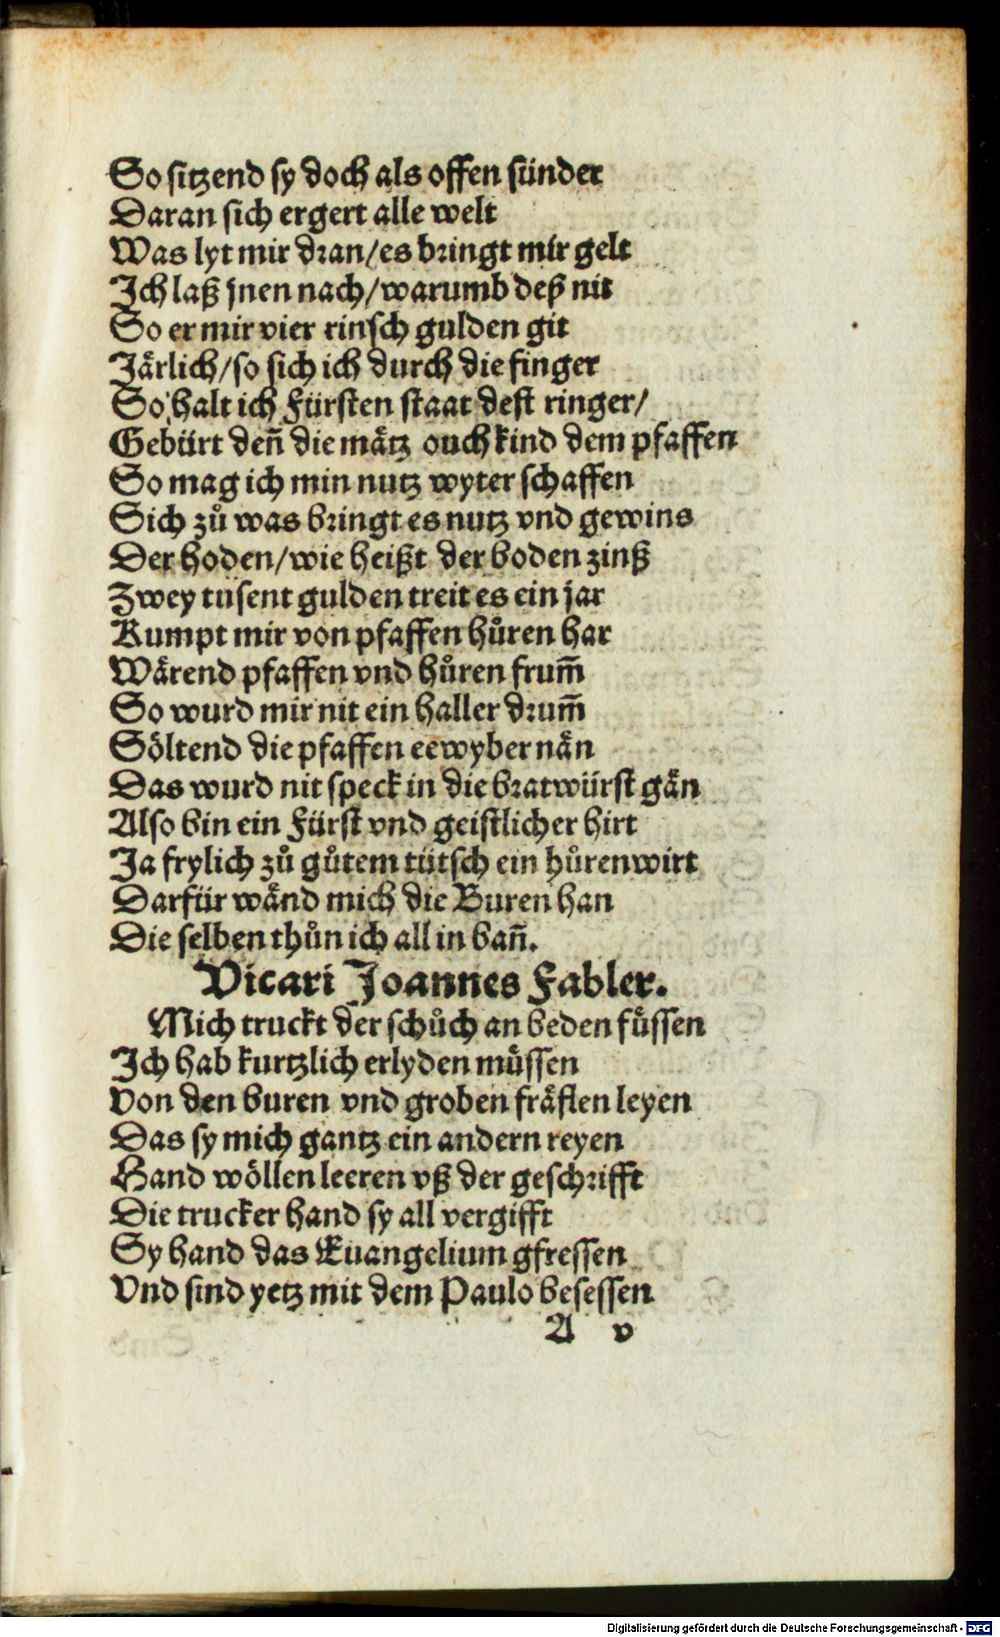 So sitzend sy doch als offen sünder
Daran sich ergert alle welt
Was lyt mir dran/es bringt mir gelt
Ich laß jnen nach/warumb deß nit
So er mir vier rinsch gulden git
Järlich/so sich ich durch die finger
So halt ich Fürsten staat dest ringer/
Gebürt deñ die mätz ouch kind dem pfaffen
So mag ich min nutz wyter schaffen
Sich zů was bringt es nutz vnd gewins
Der hoden/wie heißt der boden zinß
Zwey tusent gulden treit es ein jar
Kumpt mir von pfaffen hůren har
Wärend pfaffen vnd hůren frum̃
So wurd mir nit ein haller drum̃
Söltend die pfaffen eewyber nän
Das wurd nit speck in die bratwürst gän
Also bin ein Fürst vnd geistlicher hirt
Ja frylich zů gůtem tütsch ein hůrenwirt
Darfür wänd mich die Buren han
Die selben thůn ich all in bañ.
Vicari Joannes Fabler.
Mich truckt der schůch an beden füssen
Ich hab kurtzlich erlyden müssen
Von den buren vnd groben fräflen leyen
Das sy mich gantz ein andern reyen
Hand wöllen leeren vß der geschrifft
Die trucker hand sy all vergifft
Sy hand das Euangelium gfressen
Vnd sind yetz mit dem Paulo besessen
A v
Digitalisierung gefördert durch die Deutsche Forschungsgemeinschaft - DFG